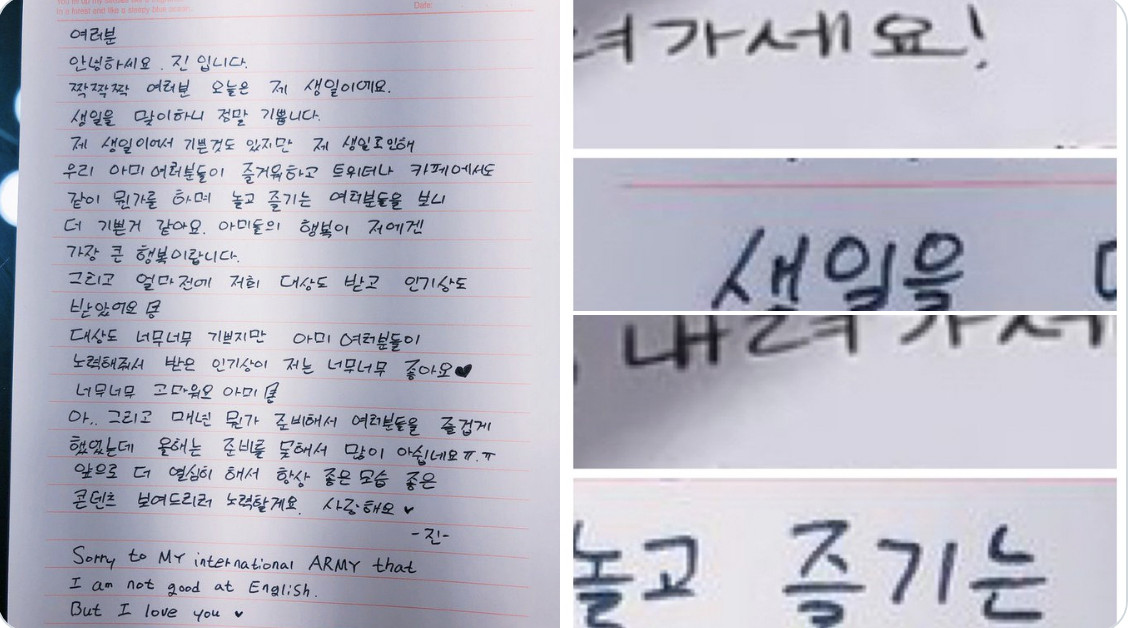 in a forest and like a sleepy blue ocean
Date:
여러분
안녕하세요. 진 입니다.
짝짝짝 여러분 오늘은 제 생일이에요.
생일을 맞이하니 정말 기쁩니다.
제 생일이여서 기쁜것도 있지만 제 생일로인해
우리 아미 여러분들이 즐거워하고 트위터나 카페에서도
같이 뭔가를 하며 놀고 즐기는 여러분들을 보니
더 기쁜거 같아요. 아미들의 행복이 저에겐
가장 큰 행복이랍니다.
그리고 얼마전에 저희 대상도 받고 인기상도
받았어요
대상도 너무너무 기쁘지만 아미 여러분들이
노력해줘서 받은 인기상이 저는 너무너무 좋아요♥
너무너무 고마워요 아미
아.. 그리고 매년 뭔가 준비해서 여러분들을 즐겁게
했었는데 올해는 준비를 못해서 많이 아쉽네요ㅠ.ㅠ
앞으로 더 열심히 해서 항상 좋은 모습 좋은
콘텐츠 보여드리려 노력할게요. 사랑해요 ♥
-진-
Sorry to MY international ARMY that
I am not good at English.
But I love you ♥
려가세요!
생일을
내려가세
놀고 즐기는